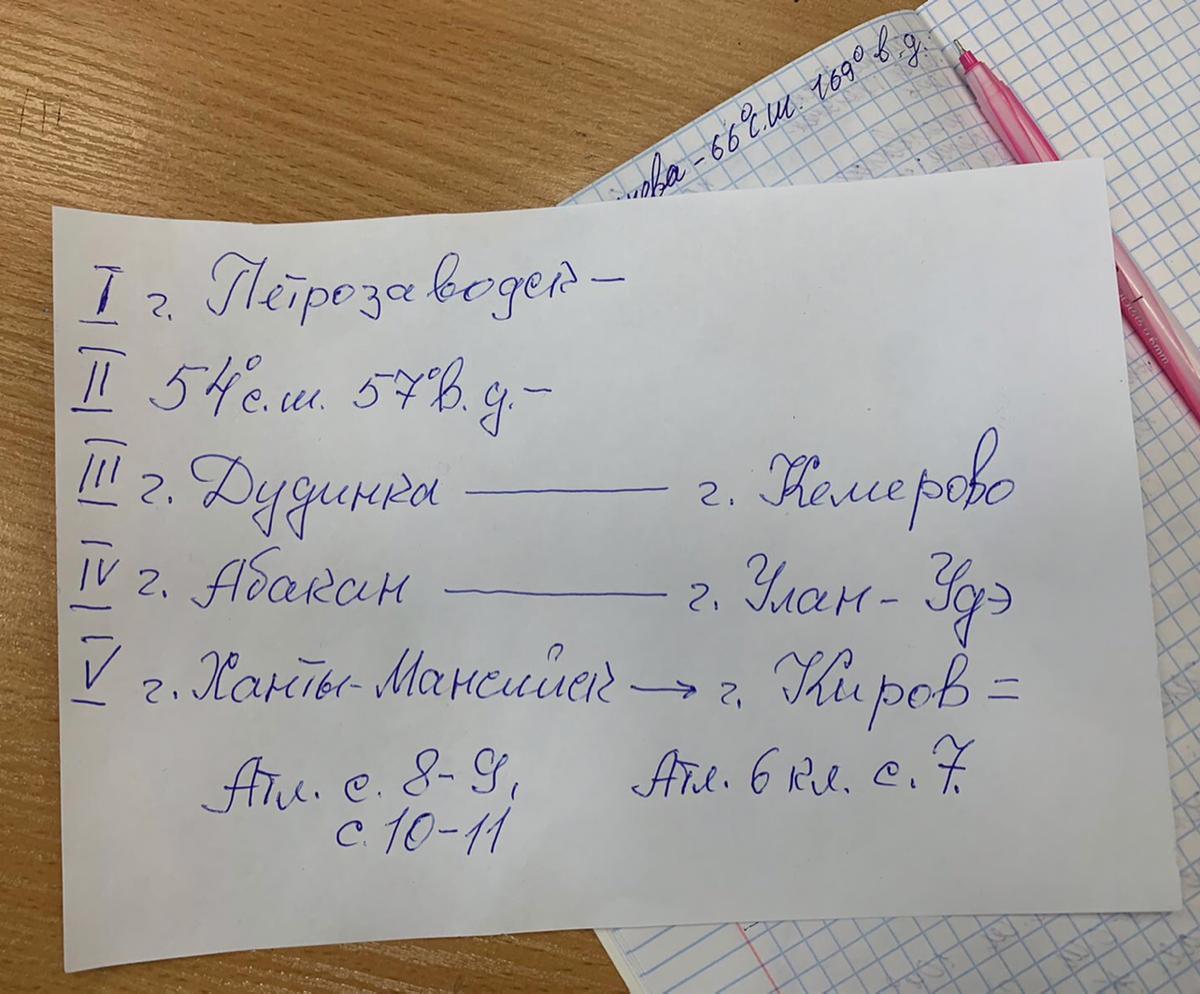 – 66° с.ш. 169° в.д.
I г. Петрозаводск –
II 54° с.ш. 57° в.д. –
III г. Дудинка —— г. Кемерово
IV г. Абакан —— г. Улан-Удэ
V г. Ханты-Мансийск → г. Киров =
Атл. с. 8-9, Атл. 6 кл. с. 7.
с. 10-11